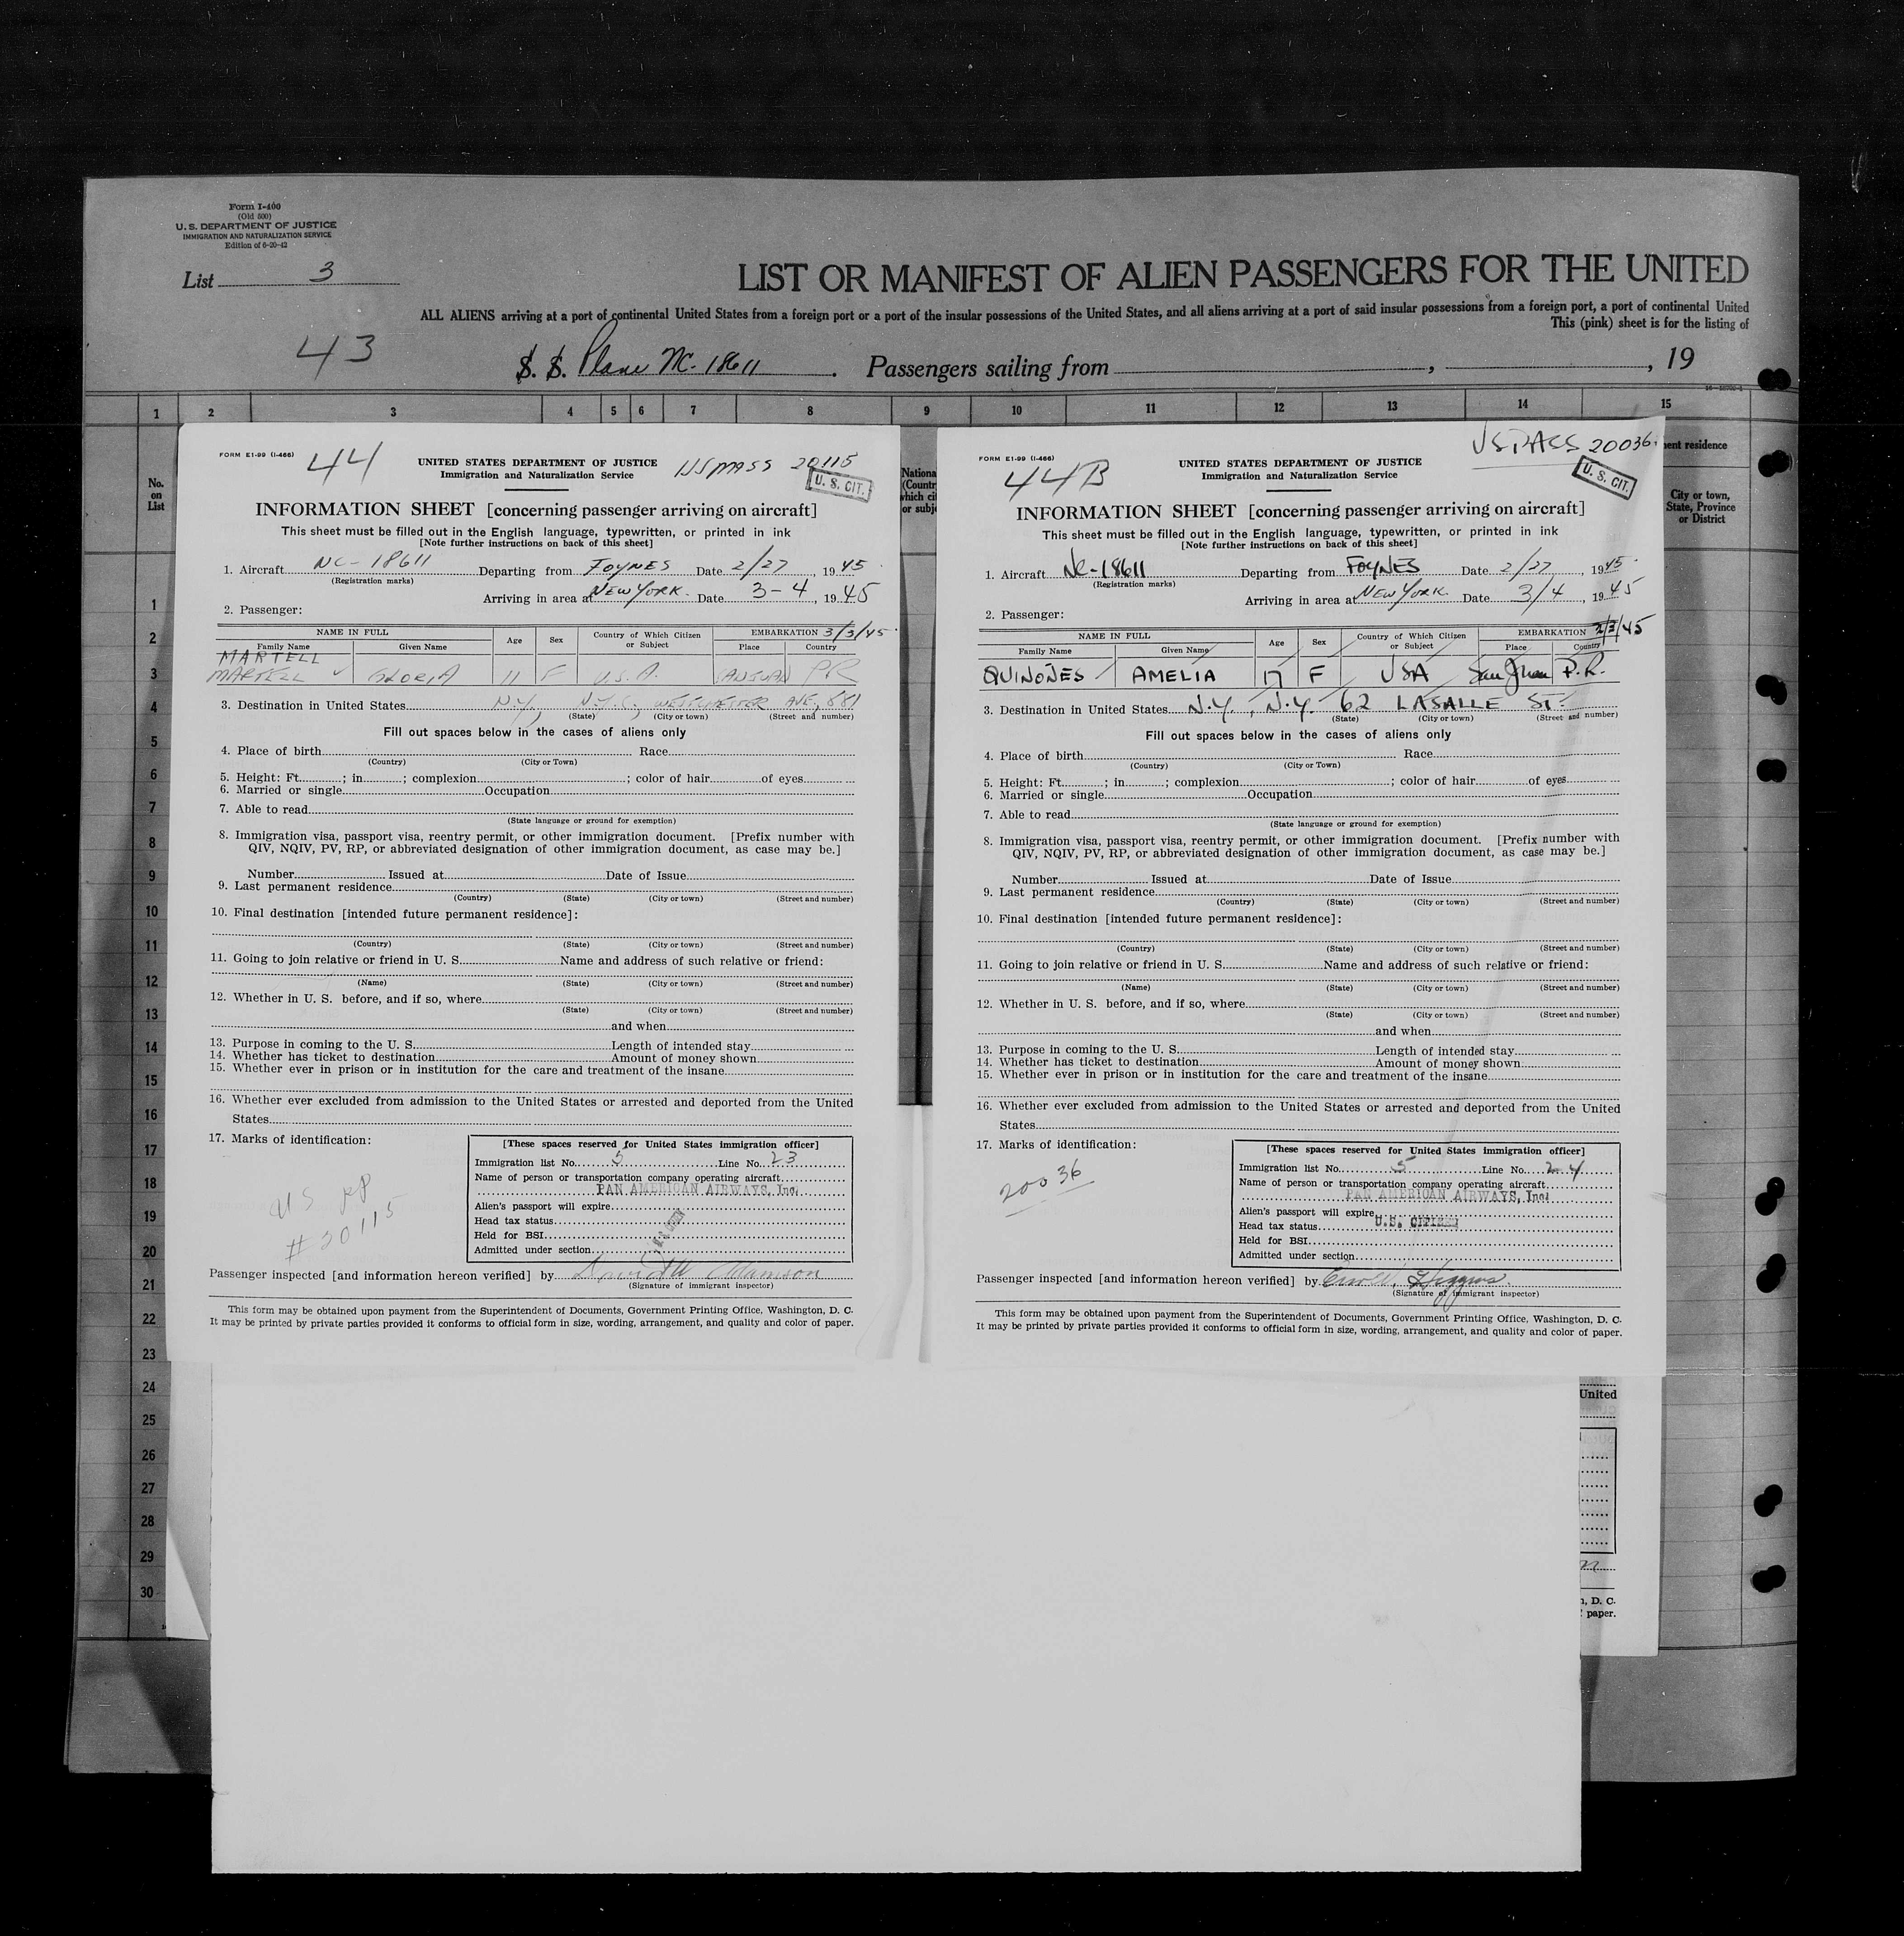 Form I-400
(Old 500)
U. S. DEPARTMENT OF JUSTICE
IMMIGRATION AND NATURALIZATION SERVICE
Edition of 6-20-42
List 3
LIST OR MANIFEST OF ALIEN PASSENGERS FOR THE UNITED
ALL ALIENS arriving at a port of continental United States from a foreign port or a port of the insular possessions of the United States, and all aliens arriving at a port of said insular possessions from a foreign port, a port of continental United
This (pink) sheet is for the listing of
43
S. S. Plane NC-18611. Passengers sailing from , , 19
1 2 3 4 5 6 7 8 9 10 11 12 13 14 15
No.
on
List
Nationa
(Countr
which cit
or subje
ent residence
City or town,
State, Province
or District
1
2
3
4
5
6
7
8
9
10
11
12
13
14
15
16
17
18
19
20
21
22
23
24
25
26
27
28
29
30
FORM E1-99 (I-466)
44
UNITED STATES DEPARTMENT OF JUSTICE
Immigration and Naturalization Service
20115
U. S. CIT.
INFORMATION SHEET [concerning passenger arriving on aircraft]
This sheet must be filled out in the English language, typewritten, or printed in ink
[Note further instructions on back of this sheet]
1. Aircraft NC-18611 Departing from FOYNES Date 2/27, 1945
(Registration marks)
Arriving in area at NEW YORK Date 3-4, 1945
2. Passenger:
NAME IN FULL Age Sex Country of Which Citizen or Subject EMBARKATION 3/3/45
Family Name Given Name Place Country
MARTELL
MARTELL GLORIA 11 F U.S.A. SANJUAN PR
3. Destination in United States N.Y., N.Y.C., WESTCHESTER AVE, 881
(State) (City or town) (Street and number)
Fill out spaces below in the cases of aliens only
4. Place of birth Race
(Country) (City or Town)
5. Height: Ft. ; in ; complexion ; color of hair of eyes
6. Married or single Occupation
7. Able to read
(State language or ground for exemption)
8. Immigration visa, passport visa, reentry permit, or other immigration document. [Prefix number with
QIV, NQIV, PV, RP, or abbreviated designation of other immigration document, as case may be.]
Number Issued at Date of Issue
9. Last permanent residence
(Country) (State) (City or town) (Street and number)
10. Final destination [intended future permanent residence]:
(Country) (State) (City or town) (Street and number)
11. Going to join relative or friend in U. S. Name and address of such relative or friend:
(Name) (State) (City or town) (Street and number)
12. Whether in U. S. before, and if so, where
(State) (City or town) (Street and number)
and when
13. Purpose in coming to the U. S. Length of intended stay
14. Whether has ticket to destination Amount of money shown
15. Whether ever in prison or in institution for the care and treatment of the insane
16. Whether ever excluded from admission to the United States or arrested and deported from the United
States
17. Marks of identification:
US PP
#20115
[These spaces reserved for United States immigration officer]
Immigration list No. 5 Line No. 23
Name of person or transportation company operating aircraft
PAN AMERICAN AIRWAYS, Inc.
Alien's passport will expire
Head tax status
Held for BSI
Admitted under section
Passenger inspected [and information hereon verified] by Adamson
(Signature of immigrant inspector)
This form may be obtained upon payment from the Superintendent of Documents, Government Printing Office, Washington, D. C.
It may be printed by private parties provided it conforms to official form in size, wording, arrangement, and quality and color of paper.
FORM E1-99 (I-466)
44B
UNITED STATES DEPARTMENT OF JUSTICE
Immigration and Naturalization Service
US PASS 20036
U. S. CIT.
INFORMATION SHEET [concerning passenger arriving on aircraft]
This sheet must be filled out in the English language, typewritten, or printed in ink
[Note further instructions on back of this sheet]
1. Aircraft NC-18611 Departing from FOYNES Date 2/27, 1945
(Registration marks)
Arriving in area at NEW YORK Date 3/4, 1945
2. Passenger:
NAME IN FULL Age Sex Country of Which Citizen or Subject EMBARKATION 3/3/45
Family Name Given Name Place Country
QUIÑONES AMELIA 17 F USA San Juan P.R.
3. Destination in United States N.Y., N.Y. 62 LASALLE ST.
(State) (City or town) (Street and number)
Fill out spaces below in the cases of aliens only
4. Place of birth Race
(Country) (City or Town)
5. Height: Ft. ; in ; complexion ; color of hair of eyes
6. Married or single Occupation
7. Able to read
(State language or ground for exemption)
8. Immigration visa, passport visa, reentry permit, or other immigration document. [Prefix number with
QIV, NQIV, PV, RP, or abbreviated designation of other immigration document, as case may be.]
Number Issued at Date of Issue
9. Last permanent residence
(Country) (State) (City or town) (Street and number)
10. Final destination [intended future permanent residence]:
(Country) (State) (City or town) (Street and number)
11. Going to join relative or friend in U. S. Name and address of such relative or friend:
(Name) (State) (City or town) (Street and number)
12. Whether in U. S. before, and if so, where
(State) (City or town) (Street and number)
and when
13. Purpose in coming to the U. S. Length of intended stay
14. Whether has ticket to destination Amount of money shown
15. Whether ever in prison or in institution for the care and treatment of the insane
16. Whether ever excluded from admission to the United States or arrested and deported from the United
States
17. Marks of identification:
20036
[These spaces reserved for United States immigration officer]
Immigration list No. 5 Line No. 24
Name of person or transportation company operating aircraft
PAN AMERICAN AIRWAYS, Inc.
Alien's passport will expire
Head tax status U.S. CITIZEN
Held for BSI
Admitted under section
Passenger inspected [and information hereon verified] by Higgins
(Signature of immigrant inspector)
This form may be obtained upon payment from the Superintendent of Documents, Government Printing Office, Washington, D. C.
It may be printed by private parties provided it conforms to official form in size, wording, arrangement, and quality and color of paper.
United
, D. C.
paper.